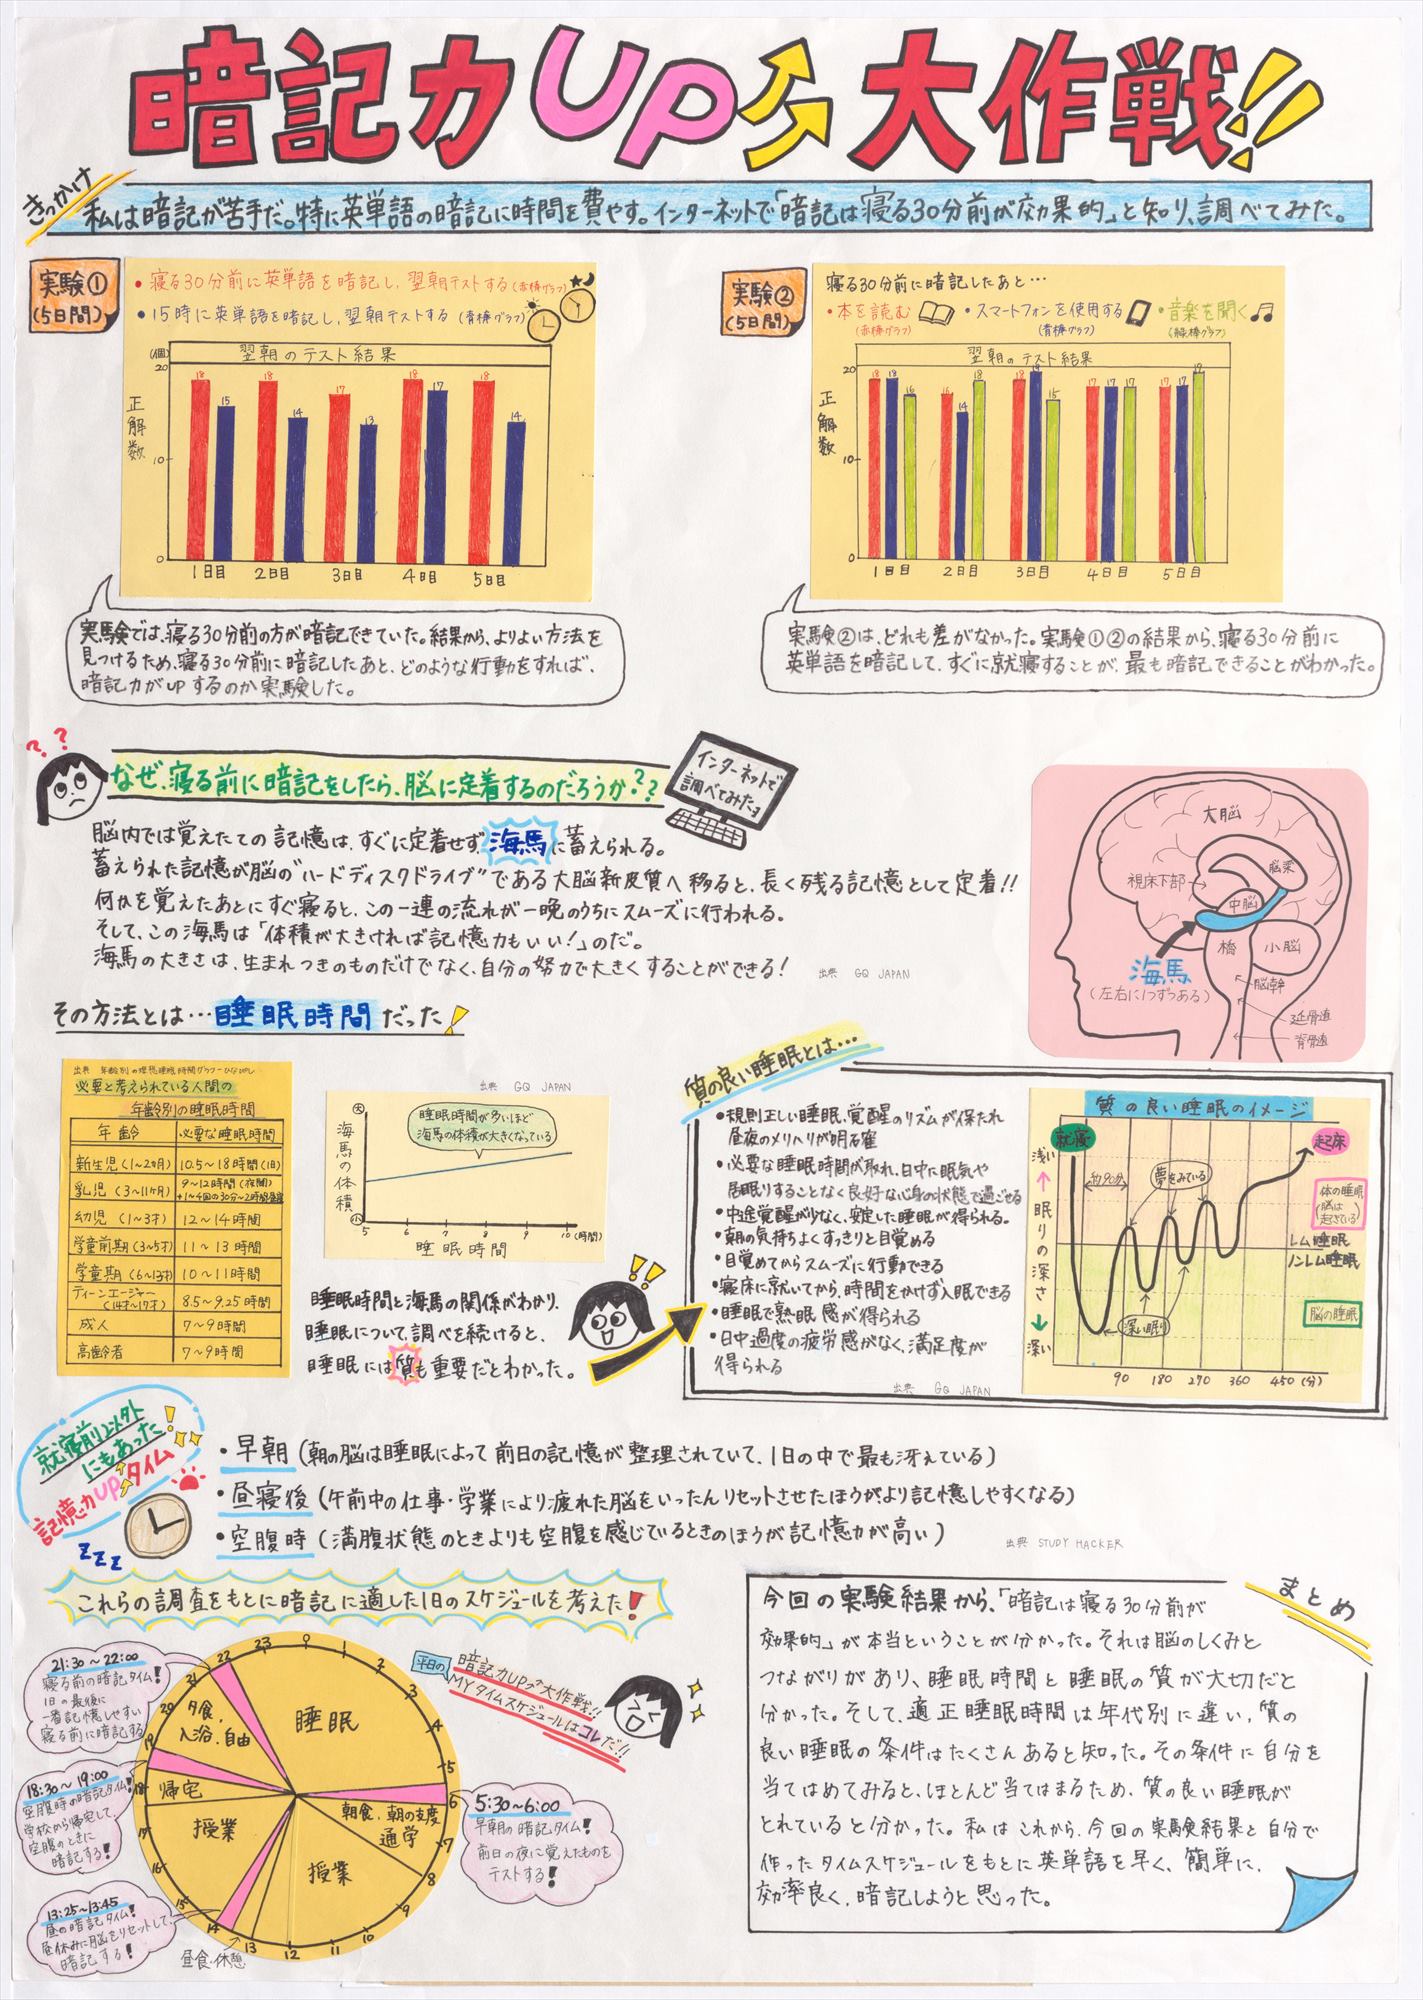 暗記力UP大作戦!!
きっかけ
私は暗記が苦手だ。特に英単語の暗記に時間を費やす。インターネットで「暗記は寝る30分前が効果的」と知り、調べてみた。
実験①
(5日間)
・寝る30分前に英単語を暗記し、翌朝テストする(赤棒グラフ)
・15時に英単語を暗記し、翌朝テストする(青棒グラフ)
翌朝のテスト結果
(個)
20
10
0
正解数
18 15 18 14 17 13 18 17 18 14
1日目 2日目 3日目 4日目 5日目
実験では、寝る30分前の方が暗記できていた。結果から、よりよい方法を
見つけるため、寝る30分前に暗記したあと、どのような行動をすれば、
暗記力がUPするのか実験した。
実験②
(5日間)
寝る30分前に暗記したあと…
・本を読む ・スマートフォンを使用する ・音楽を聞く
(赤棒グラフ) (青棒グラフ) (緑棒グラフ)
翌朝のテスト結果
20
10
0
正解数
18 18 16 16 14 18 18 19 15 17 17 17 17 17 19
1日目 2日目 3日目 4日目 5日目
実験②は、どれも差がなかった。実験①②の結果から、寝る30分前に
英単語を暗記して、すぐに就寝することが、最も暗記できることがわかった。
??
なぜ、寝る前に暗記をしたら、脳に定着するのだろうか??
インターネットで
調べてみたョ
脳内では覚えたての記憶は、すぐに定着せず、海馬に蓄えられる。
蓄えられた記憶が脳の"ハードディスクドライブ"である大脳新皮質へ移ると、長く残る記憶として定着!!
何かを覚えたあとにすぐ寝ると、この一連の流れが一晩のうちにスムーズに行われる。
そして、この海馬は「体積が大きければ記憶力もいい!」のだ。
海馬の大きさは、生まれつきのものだけでなく、自分の努力で大きくすることができる!
出典 GQ JAPAN
大脳
脳梁
視床下部
中脳
橋
小脳
海馬
(左右に1つずつある)
脳幹
延骨遖
脊骨遖
その方法とは…睡眠時間だった!
出典 年齢別の理想睡眠時間グラフーひなぴし
必要と考えられている人間の
年齢別の睡眠時間
年齢 必要な睡眠時間
新生児(1~2ヵ月) 10.5~18時間(1日)
乳児(3~11ヶ月) 9~12時間(夜間)
+1~4回の30分~2時間昼寝
幼児(1~3才) 12~14時間
学童前期(3~5才) 11~13時間
学童期(6~13才) 10~11時間
ティーンエージャー
(14才~17才) 8.5~9.25時間
成人 7~9時間
高齢者 7~9時間
出典 GQ JAPAN
睡眠時間が多いほど
海馬の体積が大きくなっている
大
海馬の体積
小
5 6 7 8 9 10(時間)
睡眠時間
睡眠時間と海馬の関係がわかり、
睡眠について、調べを続けると、
睡眠には質も重要だとわかった。
!!
質の良い睡眠とは…
・規則正しい睡眠、覚醒のリズムが保たれ
昼夜のメリハリが明る確
・必要な睡眠時間が取れ、日中に眠気や
居眠りすることなく良好な心身の状態で過ごせる
・中途覚醒が少なく、安定した睡眠が得られる。
・朝の気持ちよくすっきりと目覚める
・目覚めてからスムーズに行動できる
・寝床に就いてから、時間をかけず入眠できる
・睡眠で熟眠感が得られる
・日中過度の疲労感がなく、満足度が
得られる
出典 GQ JAPAN
質の良い睡眠のイメージ
就寝
起床
浅い
眠りの深さ
深い
約90分
夢をみている
深い眠り
体の睡眠
(脳は
起きている)
レム睡眠
ノンレム睡眠
脳の睡眠
90 180 270 360 450(分)
就寝前以外
にもあった!
記憶力UPタイム
ZZZ
・早朝(朝の脳は睡眠によって前日の記憶が整理されていて、1日の中で最も冴えている)
・昼寝後(午前中の仕事・学業により疲れた脳をいったんリセットさせたほうがより記憶しやすくなる)
・空腹時(満腹状態のときよりも空腹を感じているときのほうが記憶力が高い)
出典 STUDY HACKER
これらの調査をもとに暗記に適した1日のスケジュールを考えた!
平日の
暗記力UP大作戦!!
MYタイムスケジュールはコレだ!!
0 1 2 3 4 5 6 7 8 9 10 11 12 13 14 15 16 17 18 19 20 21 22 23
睡眠
朝食、朝の支度
通学
授業
昼食・休憩
授業
帰宅
夕食、
入浴、自由
21:30~22:00
寝る前の暗記タイム!
1日の最後に
一番記憶しやすい
寝る前に暗記する
18:30~19:00
空腹時の暗記タイム!
学校から帰宅して、
空腹のときに
暗記する!
13:25~13:45
昼の暗記タイム!
昼休みに脳をリセットして、
暗記する!
5:30~6:00
早朝の暗記タイム!
前日の夜に覚えたものを
テストする!
まとめ
今回の実験結果から、「暗記は寝る30分前が
効果的」が本当ということが分かった。それは脳のしくみと
つながりがあり、睡眠時間と睡眠の質が大切だと
分かった。そして、適正睡眠時間は年代別に違い、質の
良い睡眠の条件はたくさんあると知った。その条件に自分を
当てはめてみると、ほとんど当てはまるため、質の良い睡眠が
とれていると分かった。私はこれから、今回の実験結果と自分で
作ったタイムスケジュールをもとに英単語を早く、簡単に、
効率良く、暗記しようと思った。